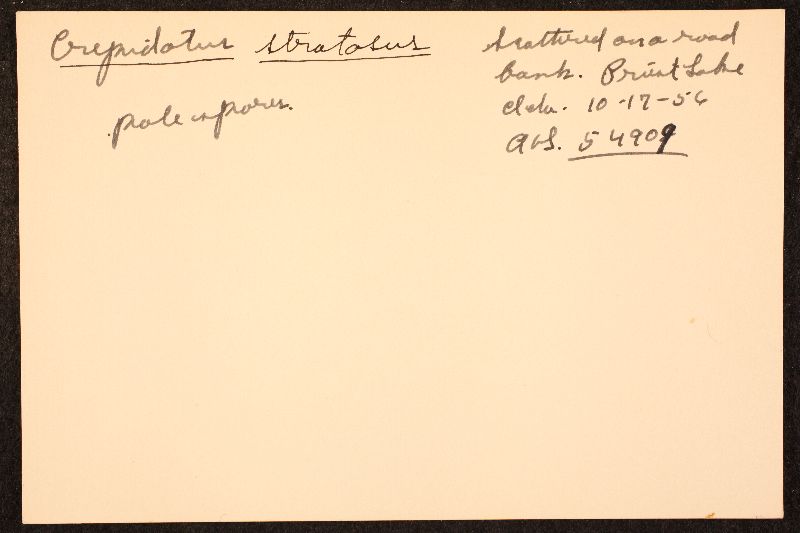 Crepidotus stratosus
pale in pores.
Scattered on a road
bank. Priest Lake
Ida. 10-17-56
AHS. 54909